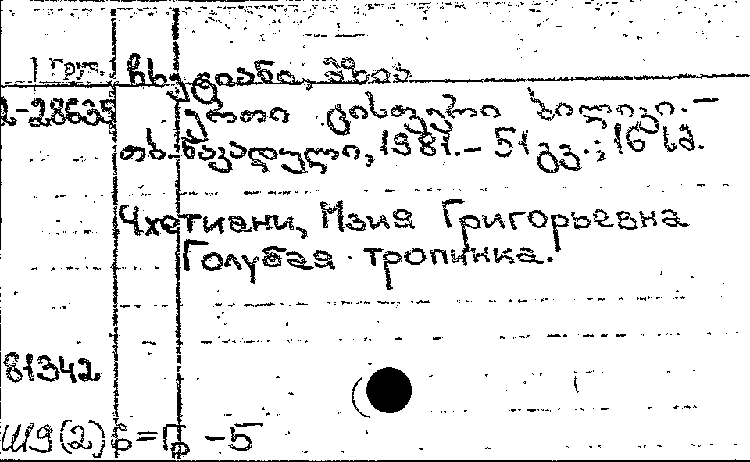 1 Груз. ჩხეტიანი, მზია
2-28635 ერთი ცისფერი ბილიკი.—
თბ. ნაკადული, 1981.— 51 გვ.; 16 სმ.
Чхетиани, Мзия Григорьевна
Голубая тропинка.
81342
Ш9(2) = Гр -5